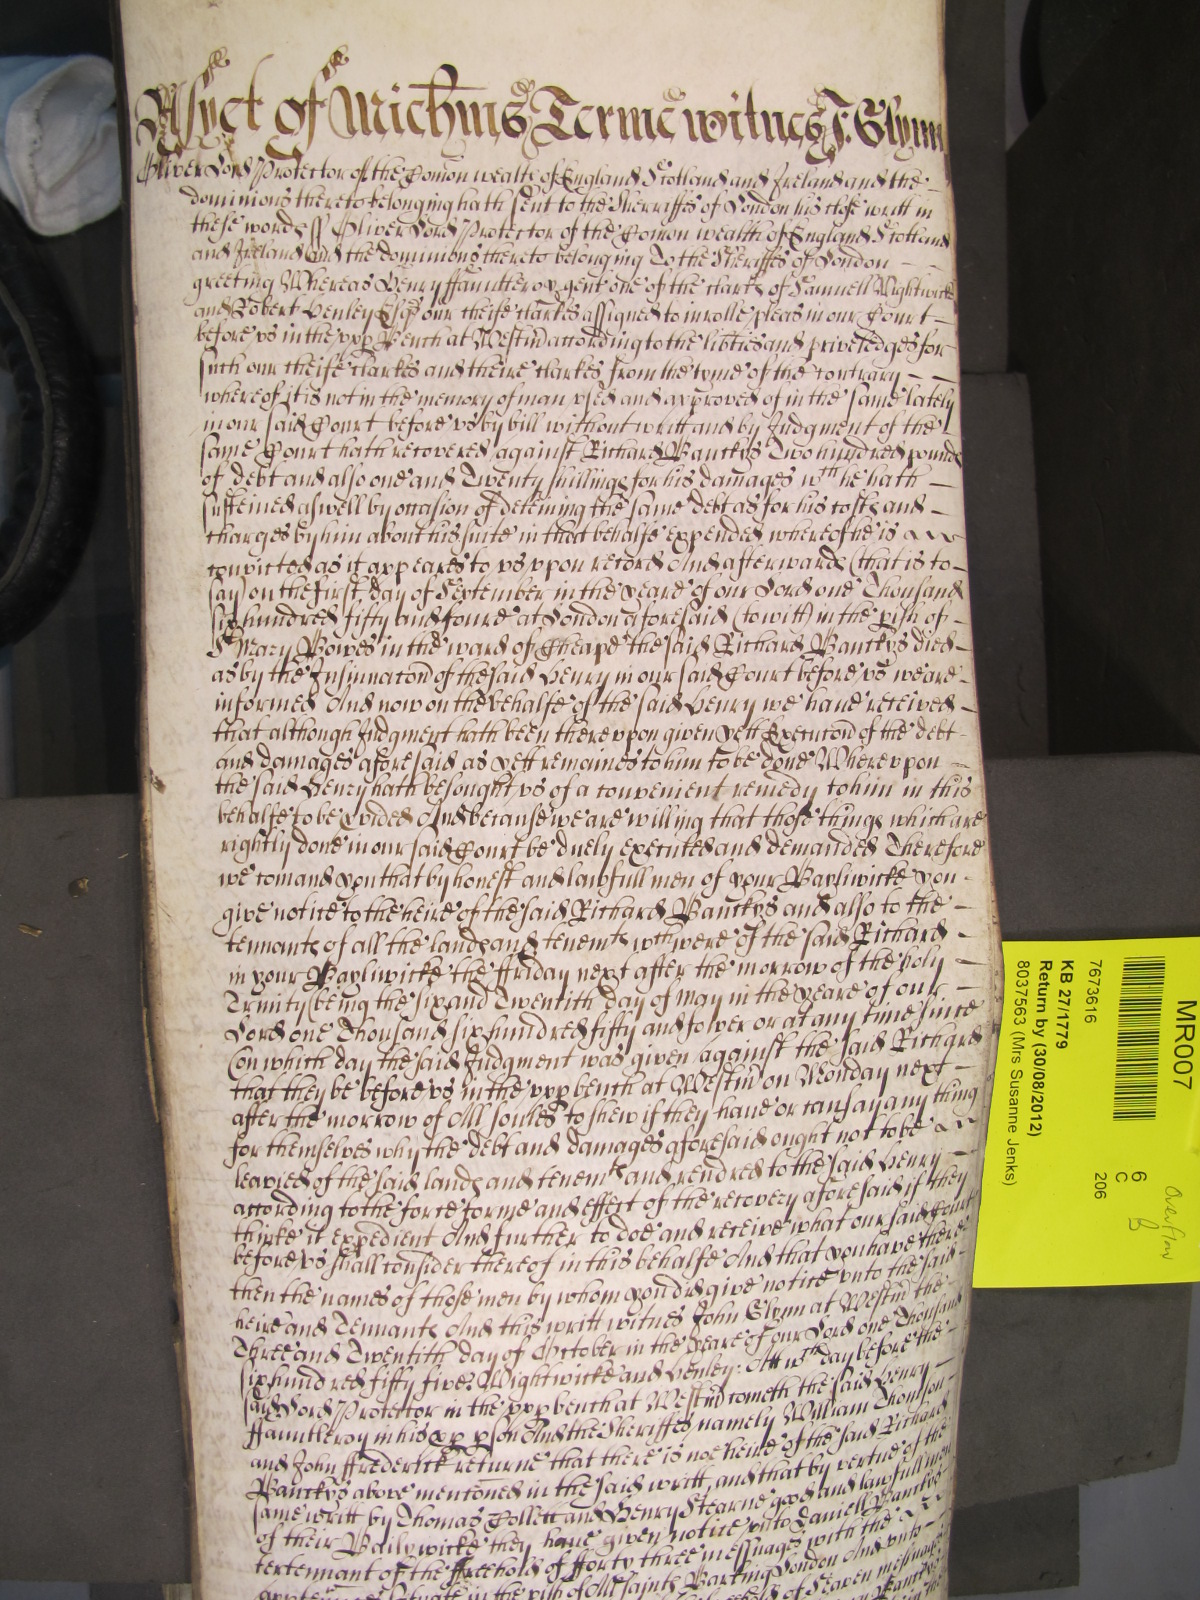 As yet of Mich̃mas Terme witnes J: Glynn
Oliver Lord Protector of the Com̃on wealth of England Scotland and Ireland and the
dominions thereto belonging hath sent to the Sherriffes of London his close writt in
these words ss Oliver Lord Protector of the Com̃on wealth of England Scotland
and Ireland and the dominions thereto belonging To the Sheriffes of London
greeting Whereas Henry ffauntleroy gent one of the clarks of Samuell Wightwick
and Robert Henley Esqrs our cheife clarkes assigned to inrolle pleas in our Court
before vs in the vpp Bench at Westm̃ according to the lib̃ties and priveledges for
such our cheife clarkes and theire clarkes from the tyme of the contrary
whereof it is not in the memory of man vsed and approved of in the same lately
in our said Court before vs by bill without writt and by Judgment of the
same Court hath recovered against Richard Banckys Two hundred pounds
of debt and also one and Twenty shillings for his damages wch he hath
susteined aswell by occasion of deteining the same debt as for his costs and
charges by him about his suite in that behalfe expended whereof he is
convicted as it appeares to vs vpon record And afterwards (that is to
say) on the first day of September in the yeare of our Lord one Thousand
six hundred fifty and foure at London aforesaid (to witt) in the p̱ish of
St Mary Bowes in the ward of Cheape the said Richard Banckys died
as by the Insinuacõn of the said Henry in our said Court before vs we are
informed And now on the behalfe of the said Henry we have received
that although Judgment hath been therevpon given yett Execucõn of the debt
and damages aforesaid as yett remaines to him to be done Wherevpon
the said Henry hath besought vs of a convenient remedy to him in this
behalfe to be p̱vided And because we are willing that those things which are
rightly done in our said Court be duely executed and demanded Therefore
we com̃and you that by honest and lawfull men of your Bayliwicke you
give notice to the heire of the said Richard Banckys and also to the
tennants of all the lands and tenemts wch were of the said Richard
in your Bayliwicke the ffriday next after the morrow of the holy
Trinity being the six and Twentith day of May in the yeare of our
Lord one Thousand six hundred fifty and fower or at any time since
(on which day the said Judgment was given against the said Richard
that they be before vs in the vpp bench at Westm̃ on Monday next
after the morrow of All soules to shew if they have or can say any thing
for themselves why the debt and damages aforesaid ought not to be
leavied of the said lands and tenemts and rendred to the said Henry
according to the force forme and effect of the recovery aforesaid if they
thinke it expedient And further to doe and receive what our said Court
before vs shall consider thereof in this behalfe And that you have there
then the names of those men by whom you did give notice vnto the said
heire and Tennants And this writt witnes John Glynn at Westm̃ the
Three and Twentith day of October in the yeare of our Lord one Thousand
six hundred fifty five: Wightwicke and Henley: Att wch day before the
said Lord Protector in the vpp bench at Westm̃ cometh the said Henry
ffauntleroy in his p̱p p̱son And the Sheriffes namely William Thomson
and John ffrederick returne that there is noe heire of the said Richard
Banckys above menc̃oned in the said writt and that by vertue of the
same writt by Thomas Collett and Henry Stearne good and lawfull men
of their Bailywicke they have given notice vnto Daniell Banckys
tertennant of the freehold of fforty three messuages with the
apptenn̄cs scituate in the p̱ish of All Saints Barking London And vnto
MR007
7673616
KB 27/1779
Return by (30/08/2012)
8037563 (Mrs Susanne Jenks)
6
C
206
Overflow